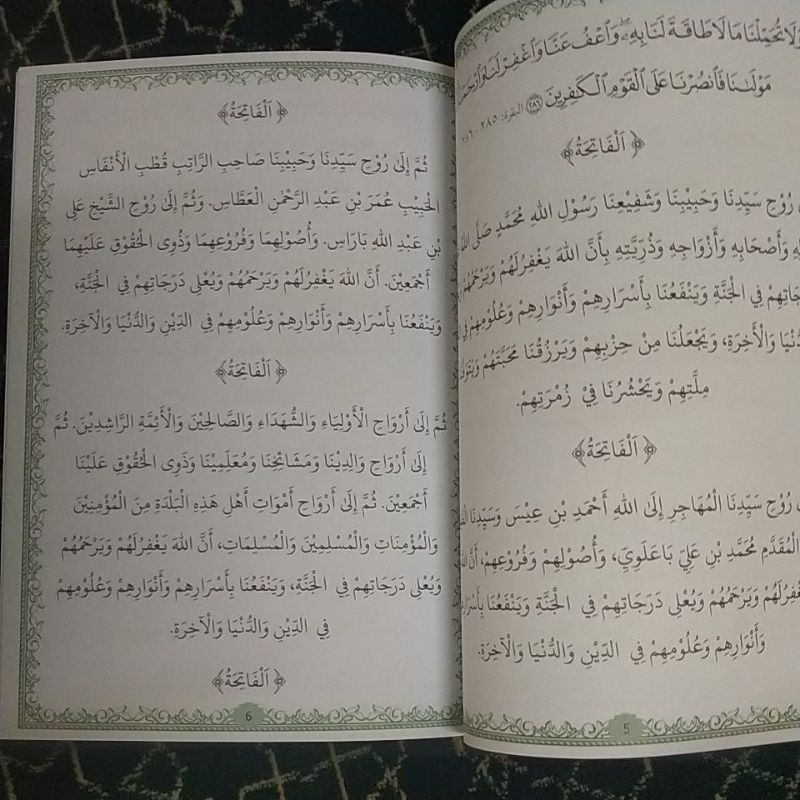 لَا تُحَمِّلْنَا مَا لَا طَاقَةَ لَنَا بِهِۦ وَٱعْفُ عَنَّا وَٱغْفِرْ لَنَا
مَوْلَىٰنَا فَٱنصُرْنَا عَلَى ٱلْقَوْمِ ٱلْكَٰفِرِينَ ﴿٢٨٦﴾ البقرة: ٢٨٥-
﴿ اَلْفَاتِحَةُ ﴾
رُوْحِ سَيِّدِنَا وَحَبِيْبِنَا وَشَفِيْعِنَا رَسُوْلِ اللهِ مُحَمَّدٍ صَلَّى
وَأَصْحَابِهِ وَأَزْوَاجِهِ وَذُرِّيَّتِهِ بِأَنَّ اللهَ يَغْفِرُلَهُمْ وَيَرْحَمُهُمْ
فِي الْجَنَّةِ وَيَنْفَعُنَا بِأَسْرَارِهِمْ وَأَنْوَارِهِمْ وَعُلُوْمِهِمْ فِي
وَالْأَخِرَةِ، وَيَجْعَلُنَا مِنْ حِزْبِهِمْ وَيَرْزُقُنَا مَحَبَّتَهُمْ
مِلَّتِهِمْ وَيَحْشُرُنَا فِيْ زُمْرَتِهِمْ.
﴿ اَلْفَاتِحَةُ ﴾
رُوْحِ سَيِّدِنَا الْمُهَاجِرِ إِلَى اللهِ أَحْمَدِ بْنِ عِيْسَ وَسَيِّدِنَا
الْمُقَدَّمِ مُحَمَّدِ بْنِ عَلِيّ بَاعَلَوِيّ، وَأُصُوْلِهِمْ وَفُرُوْعِهِمْ،
وَيَرْحَمُهُمْ وَيُعْلِى دَرَجَاتِهِمْ فِي الْجَنَّةِ وَيَنْفَعُنَا
وَأَنْوَارِهِمْ وَعُلُوْمِهِمْ فِي الدِّيْنِ وَالدُّنْيَا وَالْآخِرَةِ.
5
﴿ اَلْفَاتِحَةُ ﴾
ثُمَّ إِلَى رُوْحِ سَيِّدِنَا وَحَبِيْبِنَا صَاحِبِ الرَّاتِبِ قُطْبِ الْأَنْفَاسِ
الْحَبِيْبِ عُمَرَ بْنِ عَبْدِ الرَّحْمٰنِ الْعَطَّاسِ. وَثُمَّ إِلَى رُوْحِ الشَّيْخِ عَلِى
بْنِ عَبْدِ اللهِ بَارَاسِ. وَأُصُوْلِهِمَا وَفُرُوْعِهِمَا وَذُوِى الْحُقُوْقِ عَلَيْهِمَا
أَجْمَعِيْنَ. أَنَّ اللهَ يَغْفِرُلَهُمْ وَيَرْحَمُهُمْ وَيُعْلِى دَرَجَاتِهِمْ فِي الْجَنَّةِ،
وَيَنْفَعُنَا بِأَسْرَارِهِمْ وَأَنْوَارِهِمْ وَعُلُوْمِهِمْ فِي الدِّيْنِ وَالدُّنْيَا وَالْآخِرَةِ.
﴿ اَلْفَاتِحَةُ ﴾
ثُمَّ إِلَى أَرْوَاحِ الْأَوْلِيَاءِ وَالشُّهَدَاءِ وَالصَّالِحِيْنَ وَالْأَئِمَّةِ الرَّاشِدِيْنَ. ثُمَّ
إِلَى أَرْوَاحِ وَالِدِيْنَا وَمَشَائِخِنَا وَمُعَلِّمِيْنَا وَذَوِى الْحُقُوْقِ عَلَيْنَا
أَجْمَعِيْنَ. ثُمَّ إِلَى أَرْوَاحِ أَمْوَاتِ أَهْلِ هَذِهِ الْبَلْدَةِ مِنَ الْمُؤْمِنِيْنَ
وَالْمُؤْمِنَاتِ وَالْمُسْلِمِيْنَ وَالْمُسْلِمَاتِ، أَنَّ اللهَ يَغْفِرُلَهُمْ وَيَرْحَمُهُمْ
وَيُعْلِى دَرَجَاتِهِمْ فِي الْجَنَّةِ، وَيَنْفَعُنَا بِأَسْرَارِهِمْ وَأَنْوَارِهِمْ وَعُلُوْمِهِمْ
فِي الدِّيْنِ وَالدُّنْيَا وَالْآخِرَةِ.
﴿ اَلْفَاتِحَةُ ﴾
6